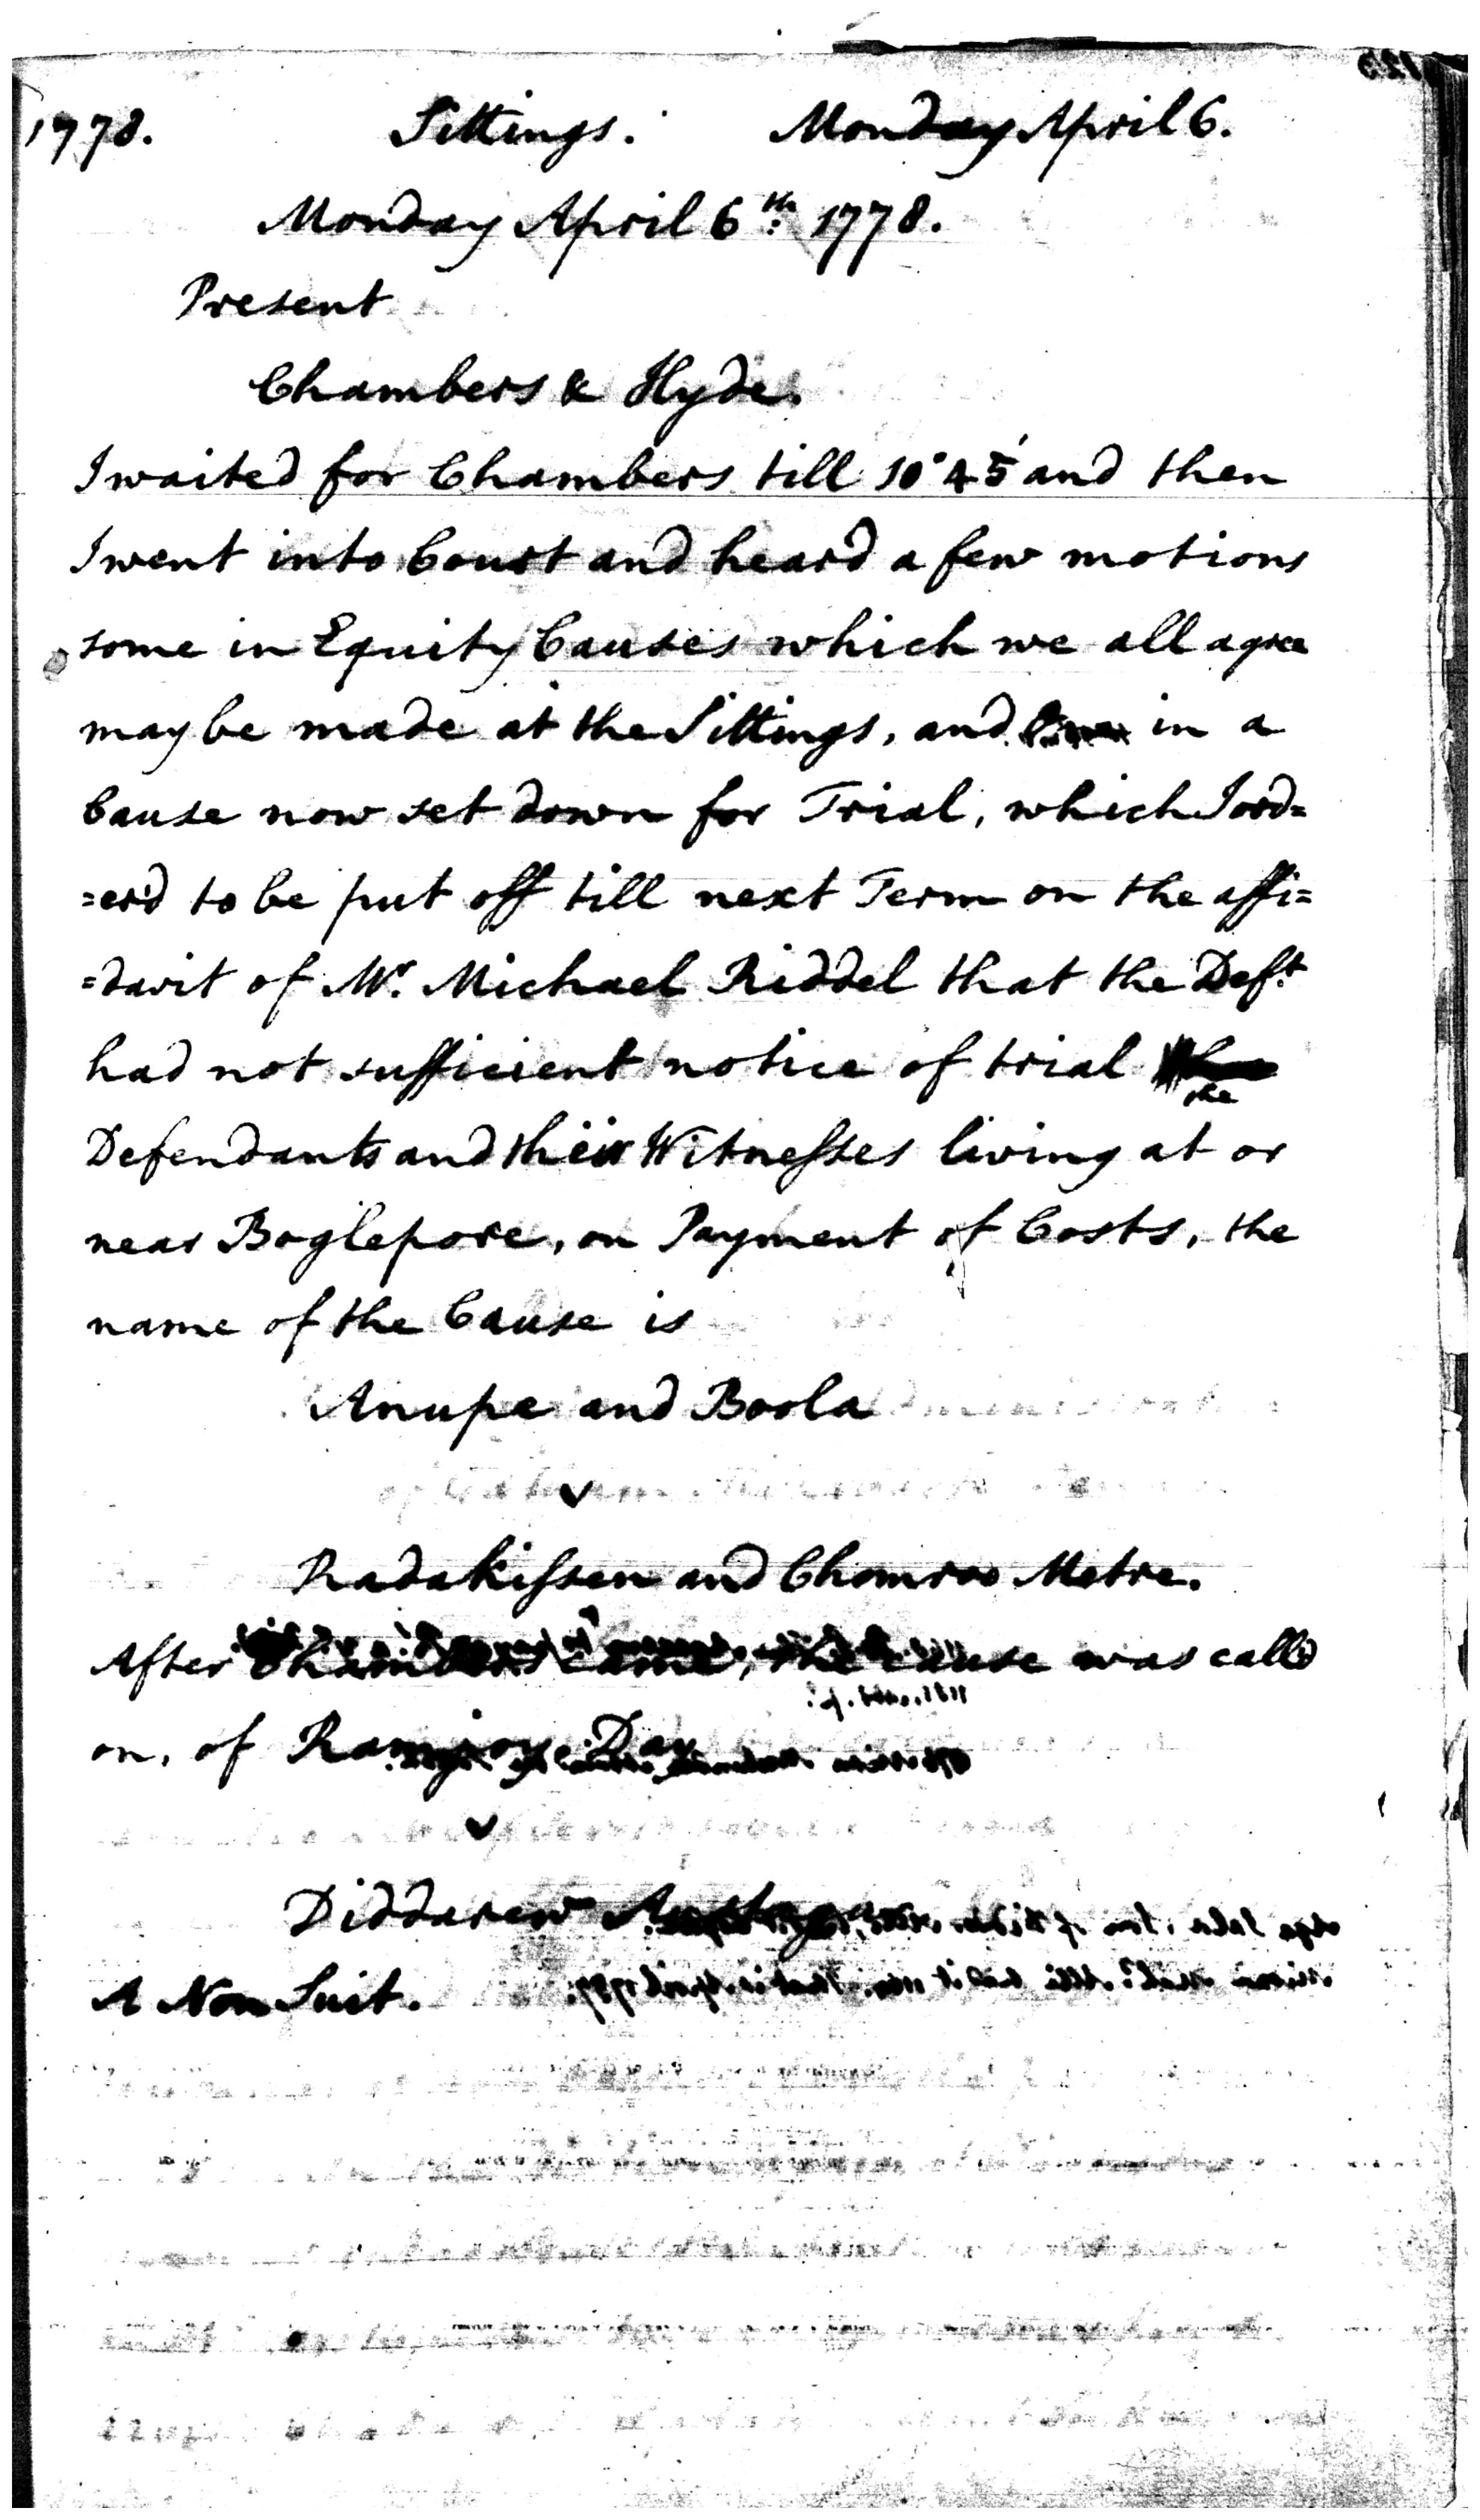 1778. Sittings. Monday April 6.
Monday April 6th. 1778.
Present
Chambers & Hyde.
I waited for Chambers till 10° 45' and then
I went into Court and heard a few motions
some in Equity Causes which we all agree
may be made at the Sittings, and in a
Cause now set down for Trial, which I ord=
=er'd to be put off till next Term on the affi=
=davit of Mr. Michael Riddel that the Deft.
had not sufficient notice of trial the
Defendants and their Witnesses living at or
near Boglepore, on Payment of Costs, the
name of the Cause is
Anupe and Boola
v
Radakissen and Metre.
After Chambers came, the cause was call'd
on, of Ramjoy Day
v
Diddarew
A Non Suit.